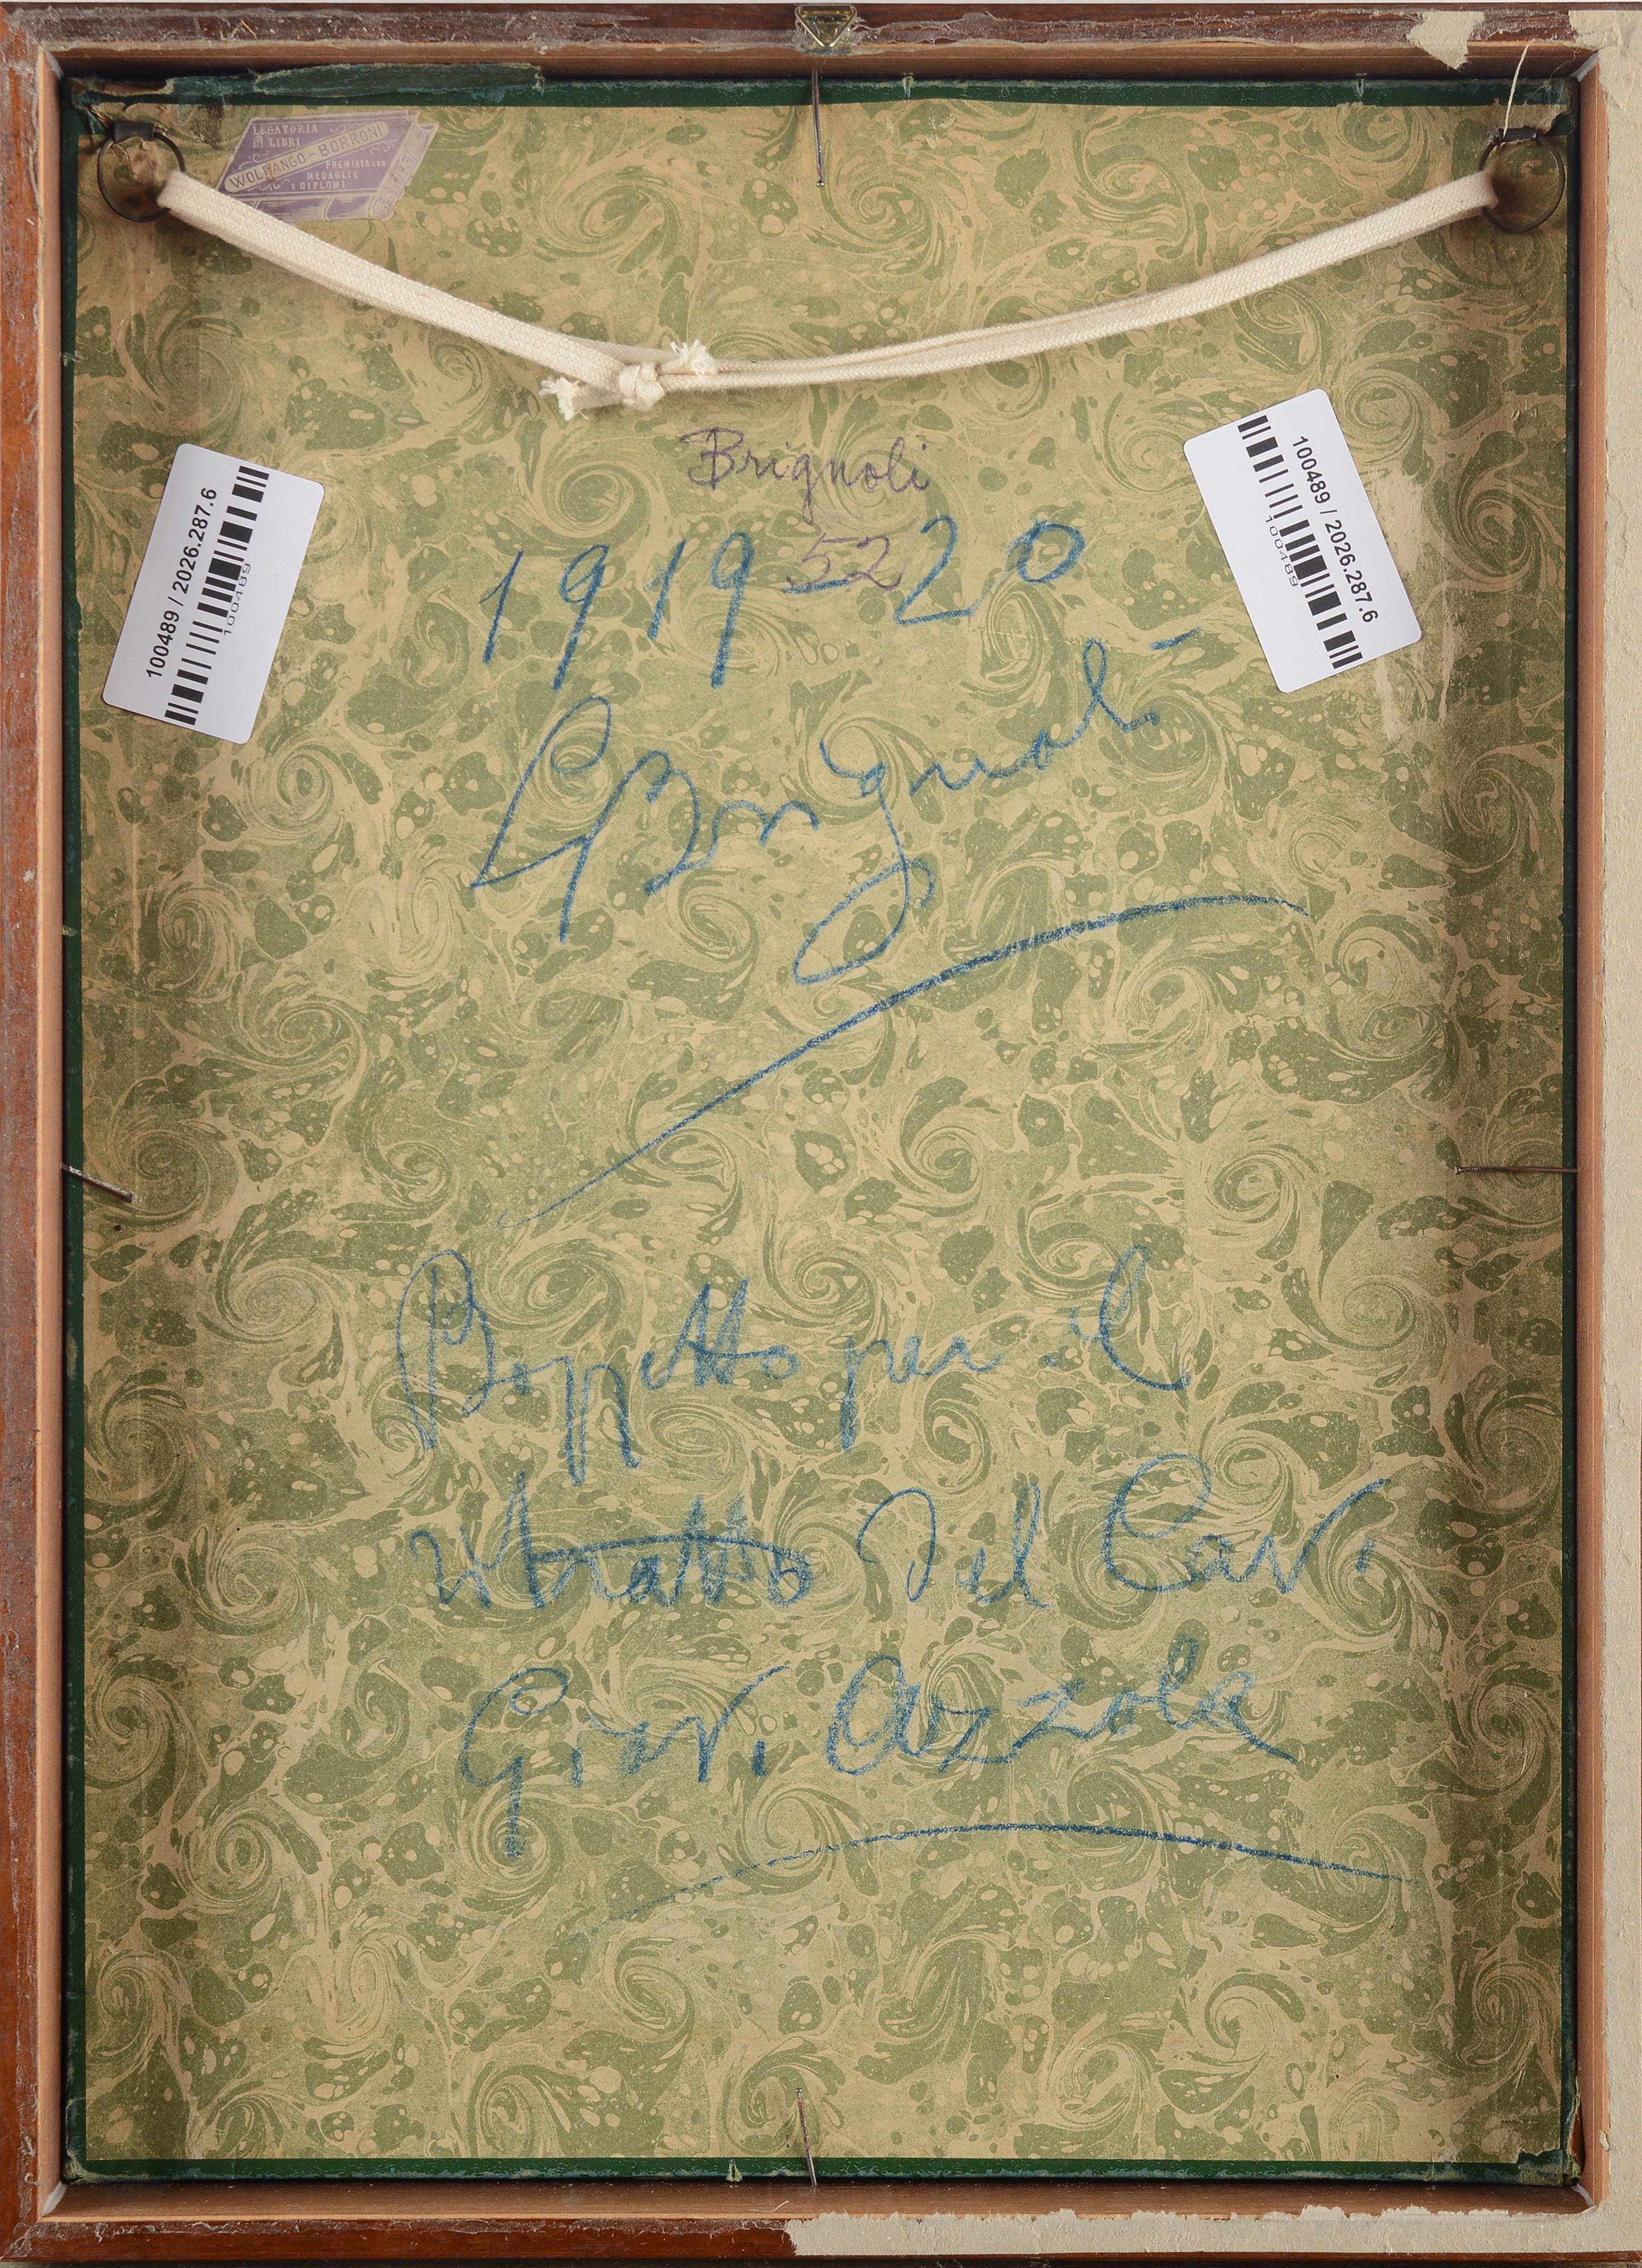 LEGATORIA
DI LIBRI
WOLFANGO-BORRONI
PREMIATA CON
MEDAGLIE
E DIPLOMI
100489 / 2026.287.6
100489
100489 / 2026.287.6
100489
Brignoli
52
1919-20
GBrignoli-
Bozzetto per il
ritratto del Cav.
Giov. Azzola